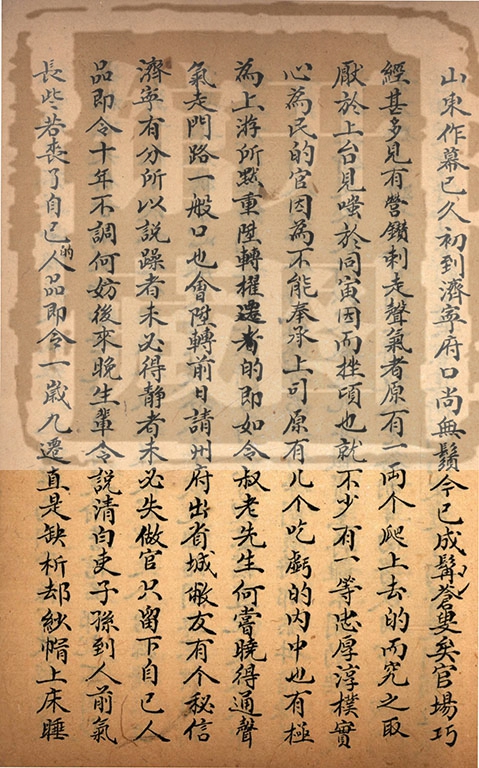 山東作幕已久初到濟寧府口尚無鬚今已成髯蒼叟矣官場巧
經甚多見有營鑽刺走聲氣者原有一兩个爬上去的而究之取
厭於上台見嗤於同寅因而挫頃也就不少有一等忠厚淳樸實
心為民的官因為不能奉承上司原有几个吃虧的内中也有極
為上游所默重陞轉擢遷者的即如令叔老先生何嘗曉得通聲
氣走門路一般口也會陞轉前日請州府出省城敝友有个秘信
濟寧有分所以説躁者未必得静者未必失做官只留下自己人
品即令十年不調何妨後來晚生輩令説清白吏子孫到人前氣
長些若喪了自己的人品即令一歲九遷直是缺析却紗帽上床睡